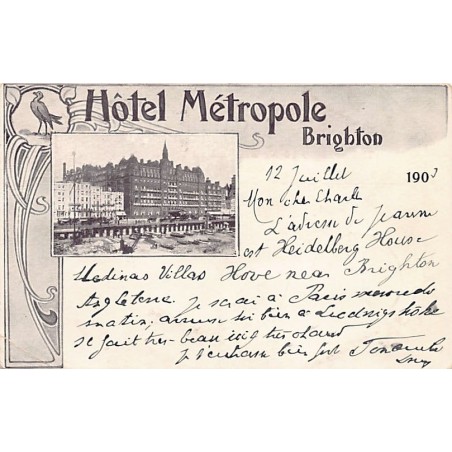 Hôtel Métropole
Brighton
12 Juillet 190
Mon cher Charles
L'adresse de Jeanne
est Heidelberg House
Medinas Villas Hove near Brighton
Angleterre. Je serai à Paris mercredi
matin,
Il fait très-beau très chaud
Je t'embrasse bien fort